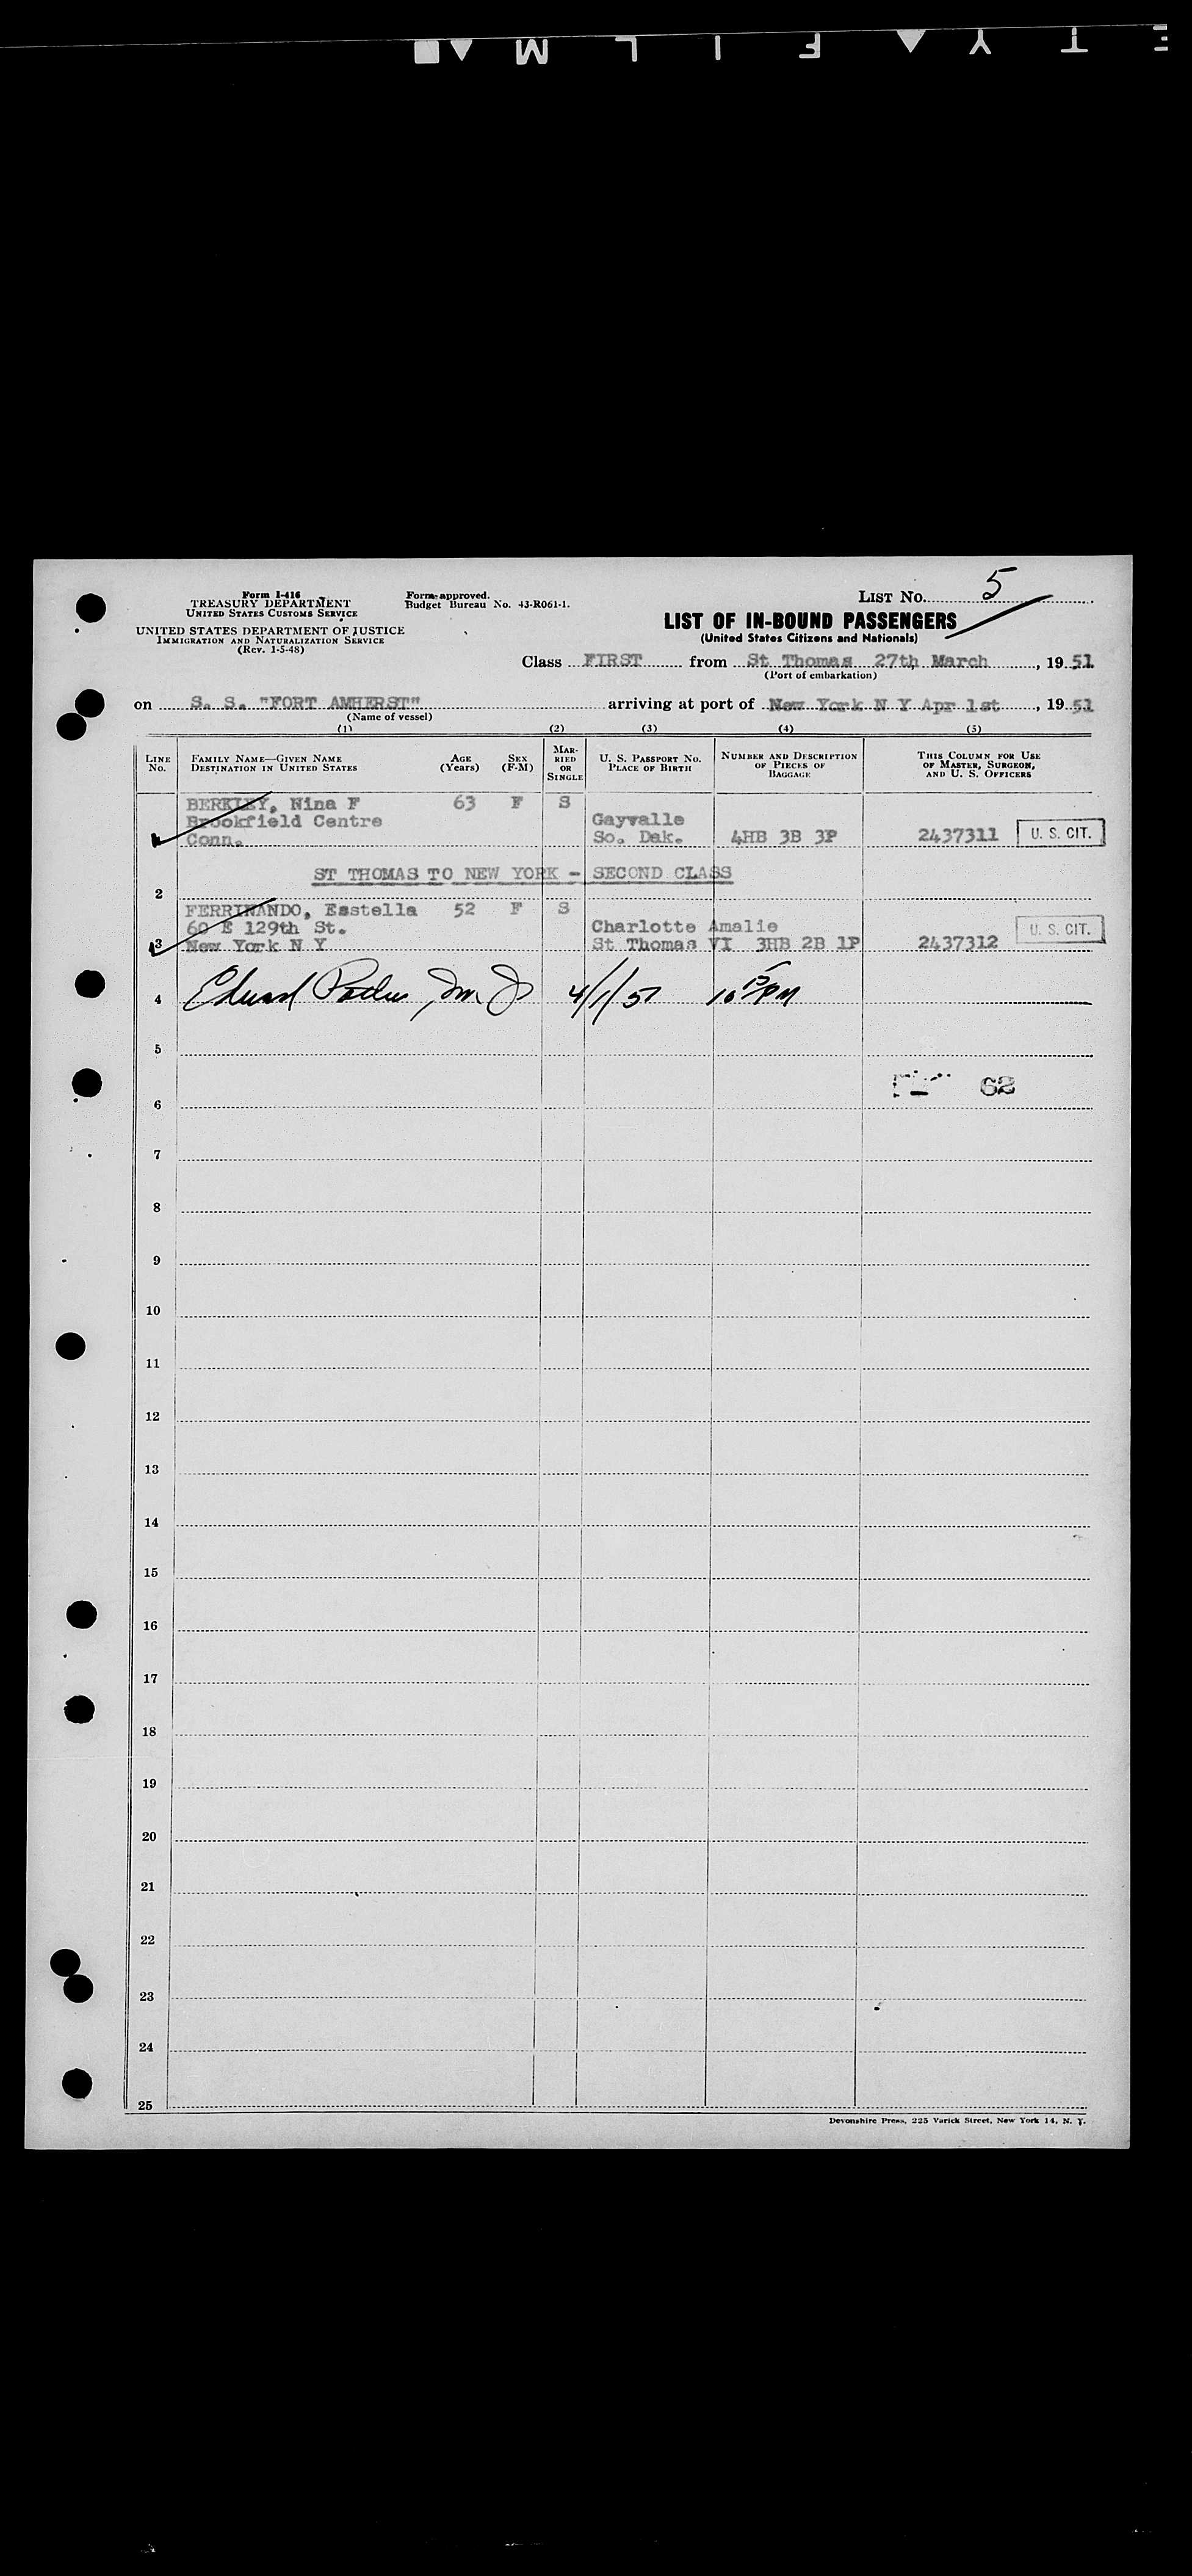 SAFETY FILM
Form I-416
TREASURY DEPARTMENT
UNITED STATES CUSTOMS SERVICE
UNITED STATES DEPARTMENT OF JUSTICE
IMMIGRATION AND NATURALIZATION SERVICE
(Rev. 1-5-48)
Form approved.
Budget Bureau No. 43-R061-1.
LIST No. 5
LIST OF IN-BOUND PASSENGERS
(United States Citizens and Nationals)
Class FIRST from St Thomas 27th March, 1951
(Port of embarkation)
on S. S. "FORT AMHERST" arriving at port of New York N Y Apr 1st, 1951
(Name of vessel)
(1) (2) (3) (4) (5)
LINE No. FAMILY NAME—GIVEN NAME DESTINATION IN UNITED STATES AGE (Years) SEX (F-M) MARRIED OR SINGLE U. S. PASSPORT NO. PLACE OF BIRTH NUMBER AND DESCRIPTION OF PIECES OF BAGGAGE THIS COLUMN FOR USE OF MASTER, SURGEON, AND U. S. OFFICERS
BERKLEY, Nina F 63 F S
Brookfield Centre Gayvalle
Conn. So. Dak. 4HB 3B 3P 2437311 U. S. CIT.
ST THOMAS TO NEW YORK - SECOND CLASS
2
FERRINANDO, Eastella 52 F S
60 E 129th St. Charlotte Amalie
3 New York N Y St Thomas VI 3HB 2B 1P 2437312 U. S. CIT.
4 4/1/51 10 15 PM
5
62
6
7
8
9
10
11
12
13
14
15
16
17
18
19
20
21
22
23
24
25
Devonshire Press, 225 Varick Street, New York 14, N. Y.